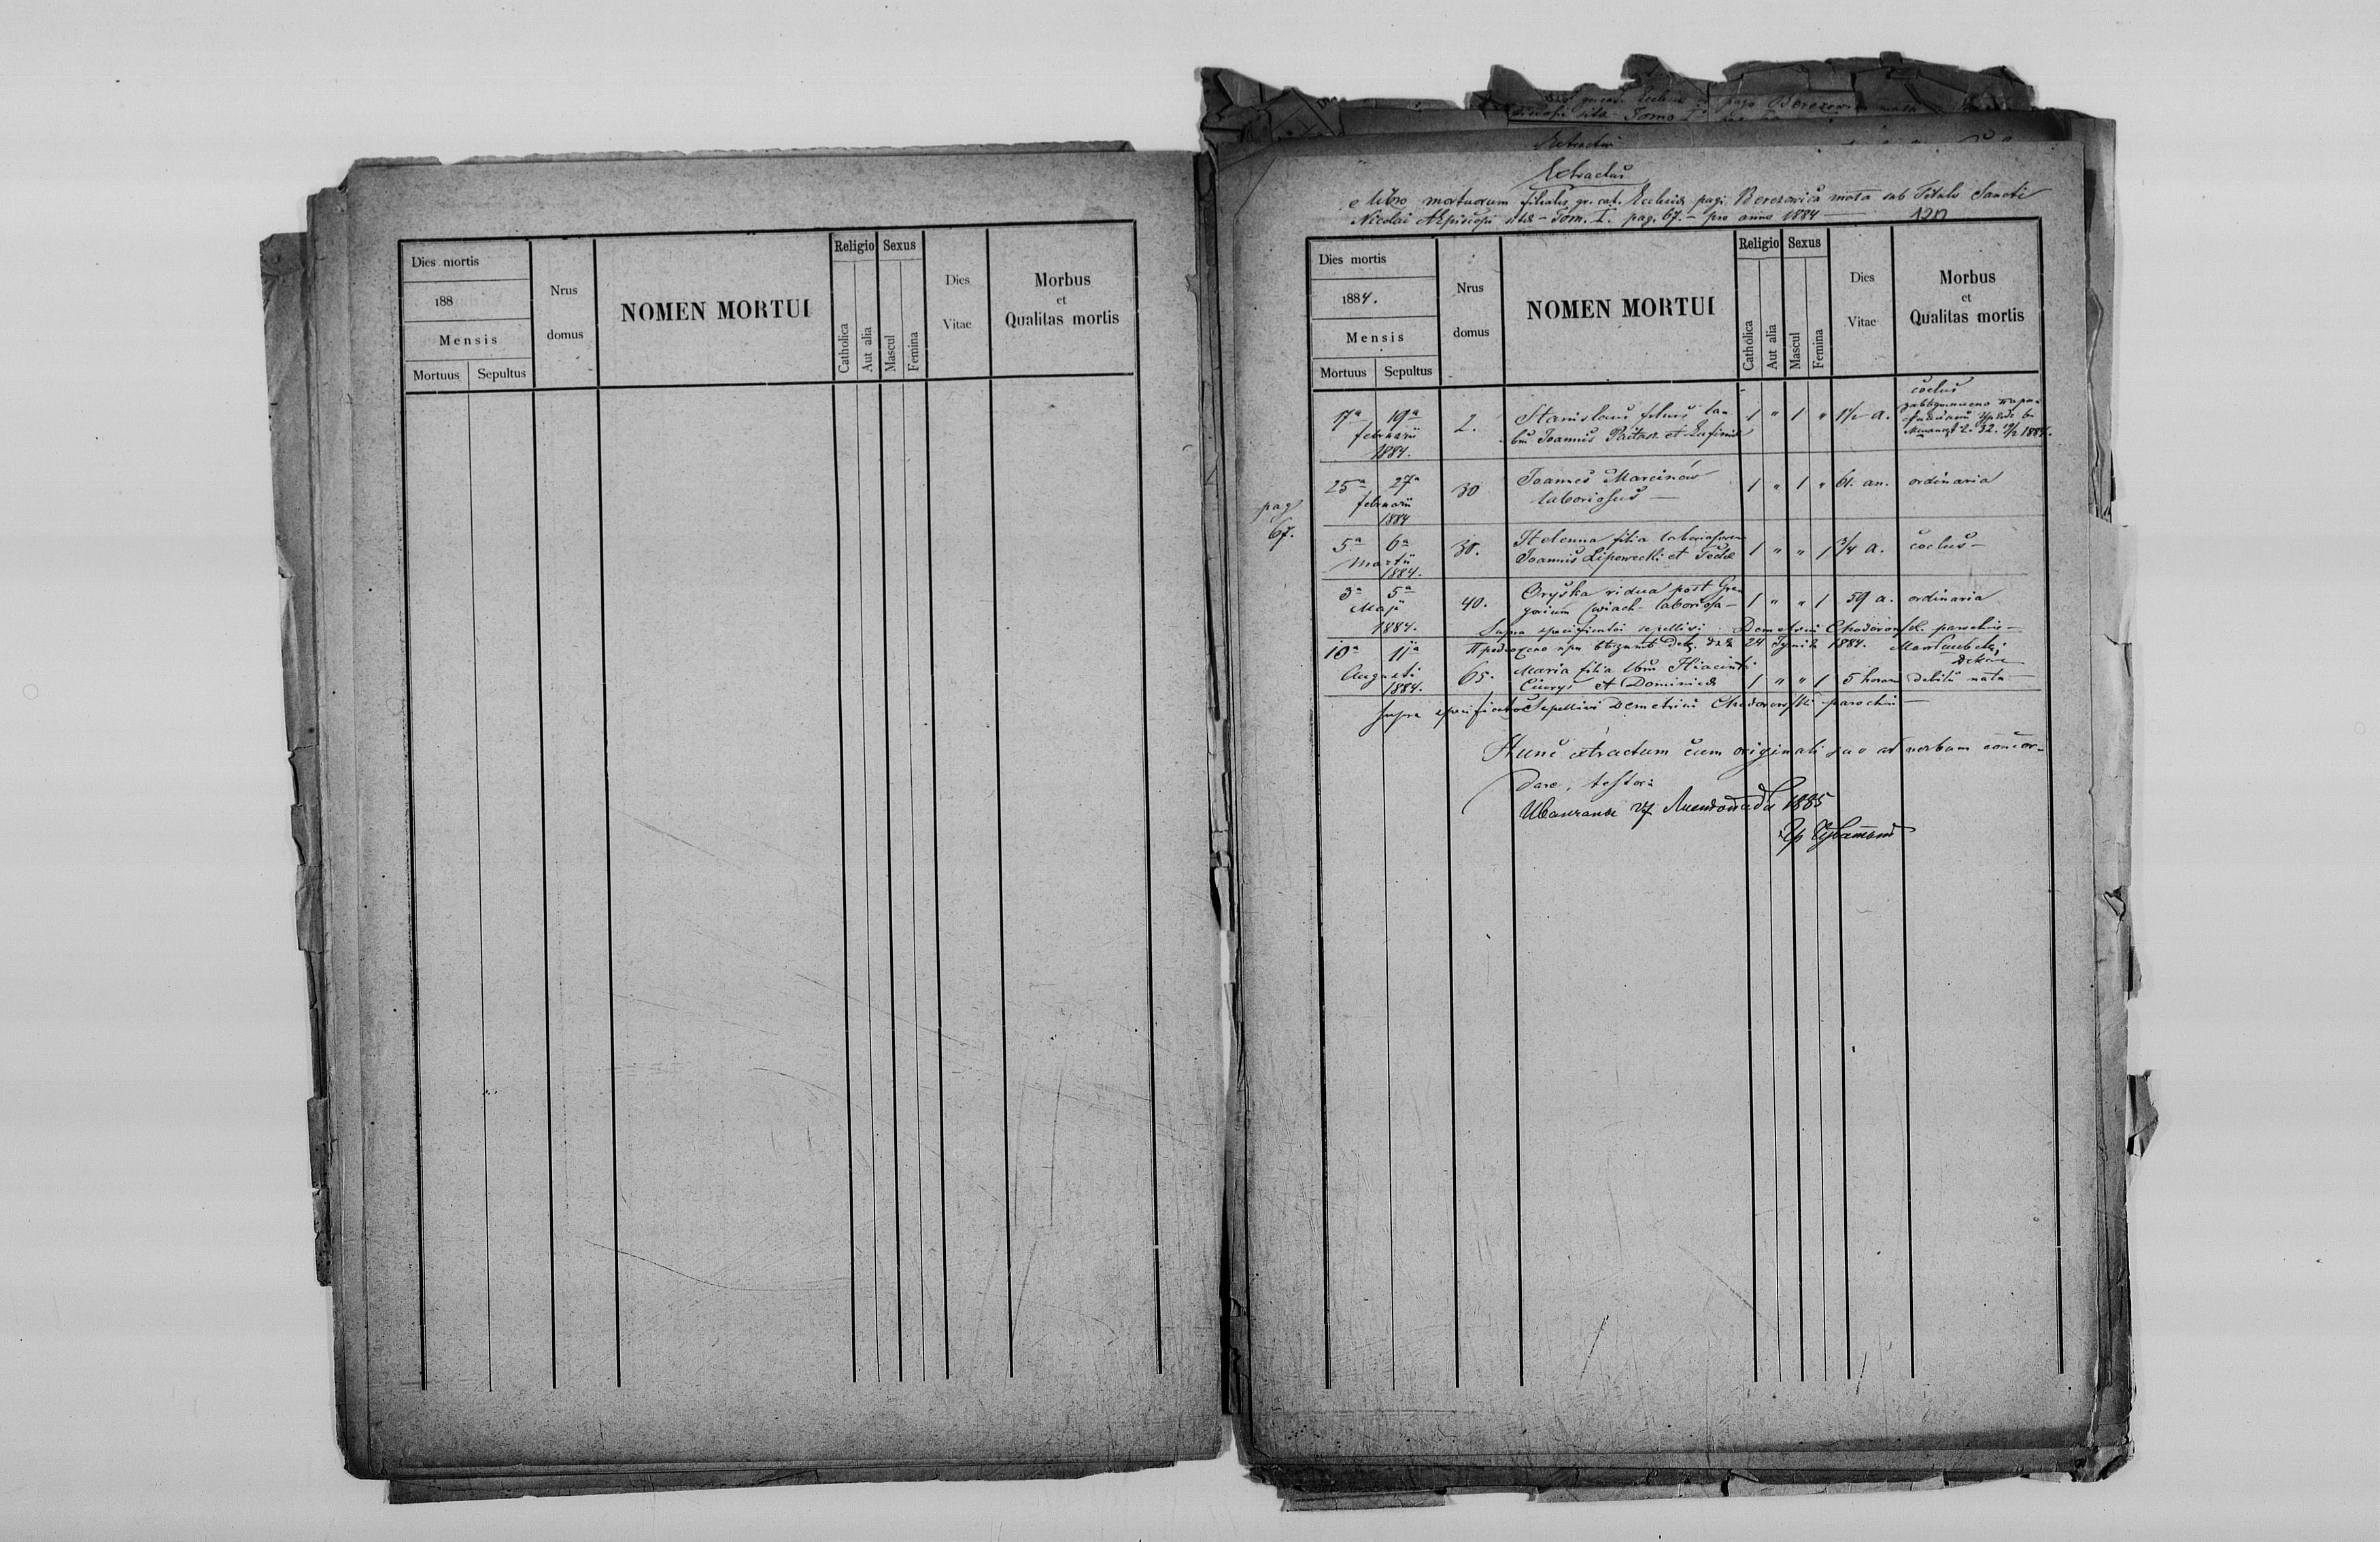 Dies mortis
188
Mensis
Mortuus Sepultus
Nrus
domus
NOMEN MORTUI
Religio Sexus
Catholica
Aut alia
Mascul
Femina
Dies
Vitae
Morbus
et
Qualitas mortis
Berezowi
Tomo I
Extractus
e libro mortuorum filialis gr. cat. Ecclesiæ pagi Berezowica mała sub Titulo Sancti
Nicolai AEpiscopi Tom. I. pag. 67. – pro anno 1884 –
120
Dies mortis
1884.
Mensis
Mortuus Sepultus
Nrus
domus
NOMEN MORTUI
Religio Sexus
Catholica
Aut alia
Mascul
Femina
Dies
Vitae
Morbus
et
Qualitas mortis
pag
67.
17a 19a
februarii
1884.
2.
Stanislaus filius la-
Joannis et
1 " 1 " 1½ a.
1884.
25a 27a
februarii
1884
30
Joannes Marcinów
laboriosus –
1 " 1 " 61. an. ordinaria
5a 6a
Martii
1884.
30.
Helenna filia laboriosorum
Joannis Lipowecki et
1 " " 1 3/4 a.
3a 5a
Maji
1884.
40.
Oryśka vidua post Gre-
gorium laboriosa –
1 " " 1 59 a. ordinaria
Supra specificatos sepellivi Demetrius Chodorowski parochus –
24 1884.
10a 11a
Augusti
1884.
65.
Maria filia Hiacinthi
et Dominicæ
1 " " 1 5 horas debilis nata
Supra specificatos Sepellivi Demetrius Chodorowski parochus –
Hunc extractum cum originali suo ad verbum concor-
dare, testor:
1885